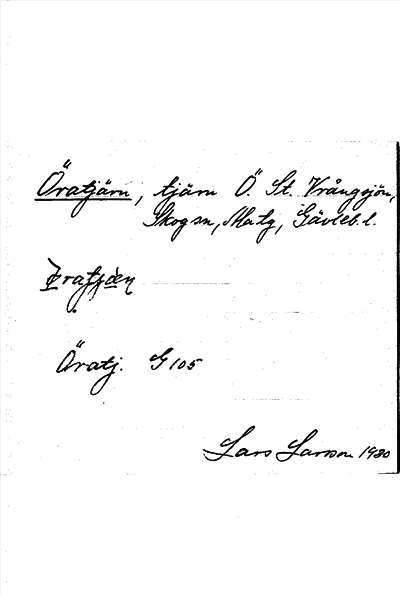 Öratjärn, tjärn Ö. St. Vrångsjön,
Skogsn, Matg, Gävleb.l.
Öratj. G 105
Lars Larsson 1930